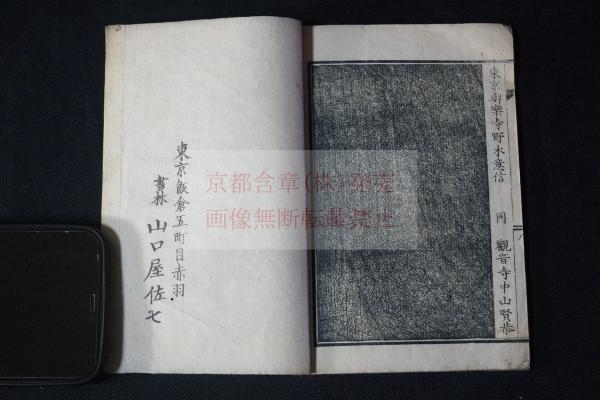 東京與樂寺野木意信 同 觀音寺中山賢恭
東京飯倉五町目赤羽
書林 山口屋佐七
京都含章(株)発売
画像無断転載禁止